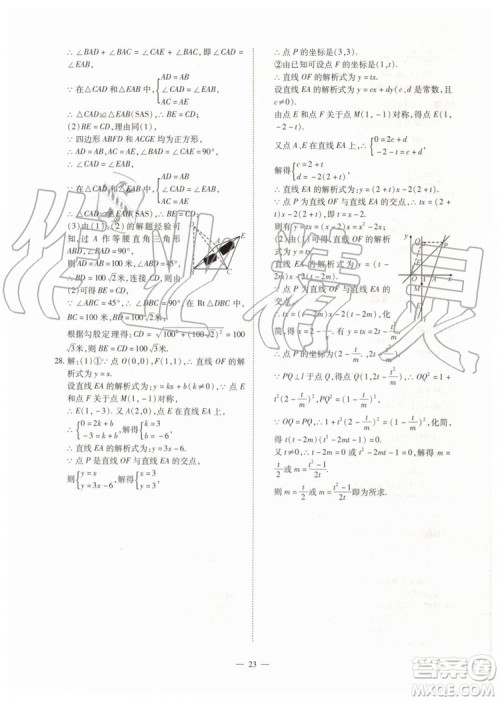 ∴∠BAD+∠BAC=∠BAC+∠CAE,即∠CAD=
∠EAB,
∵在△CAD和△EAB中{AD=AB
∠CAD=∠EAB,
AC=AE
∴△CAD≌△EAB(SAS),∴BE=CD;
(2)BE=CD,理由同(1),
∵四边形ABFD和ACGE均为正方形,
∴AD=AB,AC=AE,∠BAD=∠CAE=90°,
∴∠CAD=∠EAB,
∵在△CAD和△EAB中{AD=AB
∠CAD=∠EAB,
AC=AE
∴△CAD≌△EAB(SAS),∴BE=CD;
(3)由(1)、(2)的解题经验可
知,过A作等腰直角三角形
ABD,∠BAD=90°,
则AD=AB=100米,∠ABD=45°,
∴BD=100√2米,连接CD,则
由(2)可得BE=CD,
∵∠ABC=45°,∴∠DBC=90°,在Rt△DBC中,
BC=100米,BD=100√2米,
根据勾股定理得:CD=√(100²+(100√2)²)=
100√3米,则BE=CD=100√3米.
28.解:(1)①∵点O(0,0),F(1,1),∴直线OF的解
析式为y=x.
设直线EA的解析式为:y=kx+b(k≠0)、∵点E
和点F关于点M(1,-1)对称,
∴E(1,-3).又A(2,0),点E在直线EA上,
∴{0=2k+b
-3=k+b,解得{k=3
b=-6,
∴直线EA的解析式为:y=3x-6.
∵点P是直线OF与直线EA的交点,
则{y=x
y=3x-6,解得{x=3
y=3,
∴点P的坐标是(3,3).
②由已知可设点F的坐标是(1,t).
∴直线OF的解析式为y=tx.
设直线EA的解析式为y=cx+dy(c、d是常数,且
c≠0).
由点E和点F关于点M(1,-1)对称,得点E(1,
-2-t).
又点A、E在直线EA上,∴{0=2c+d
-2-t=c+d,
解得{c=2+t
d=-2(2+t),
∴直线EA的解析式为:y=(2+t)x-2(2+t).
∵点P为直线OF与直线EA的交点,∴tx=(2+
t)x-2(2+t),即t=x-2.
则有y=tx=(x-2)x=x²-2x;
(2)由(1)可得,直线OF的解析
式为y=tx.
直线EA的解析式为y=(t-
2m)x-2(t-2m).
∵点P为直线OF与直线EA的
交点,
∴tx=(t-2m)x-2(t-2m),
化简,得x=2-t/m.
有y=tx=2t-t²/m.∴点P的坐标为(2-t/m,2t-t²/m).
∵PQ⊥l于点Q,得点Q(1,2t-t²/m),
∴OQ²=1+t²(2-t/m)²,PQ²=(1-t/m)²,
∵OQ=PQ,∴1+t²(2-t/m)²=(1-t/m)²,化简,
得t(t-2m)(t²-2mt-1)=0.
又∵t≠0,∴t-2m=0或t²-2mt-1=0,解得m=
t/2或m=(t²-1)/2t.则m=t/2或m=(t²-1)/2t即为所求.
— 23 —
答案圈
MXQE.COM